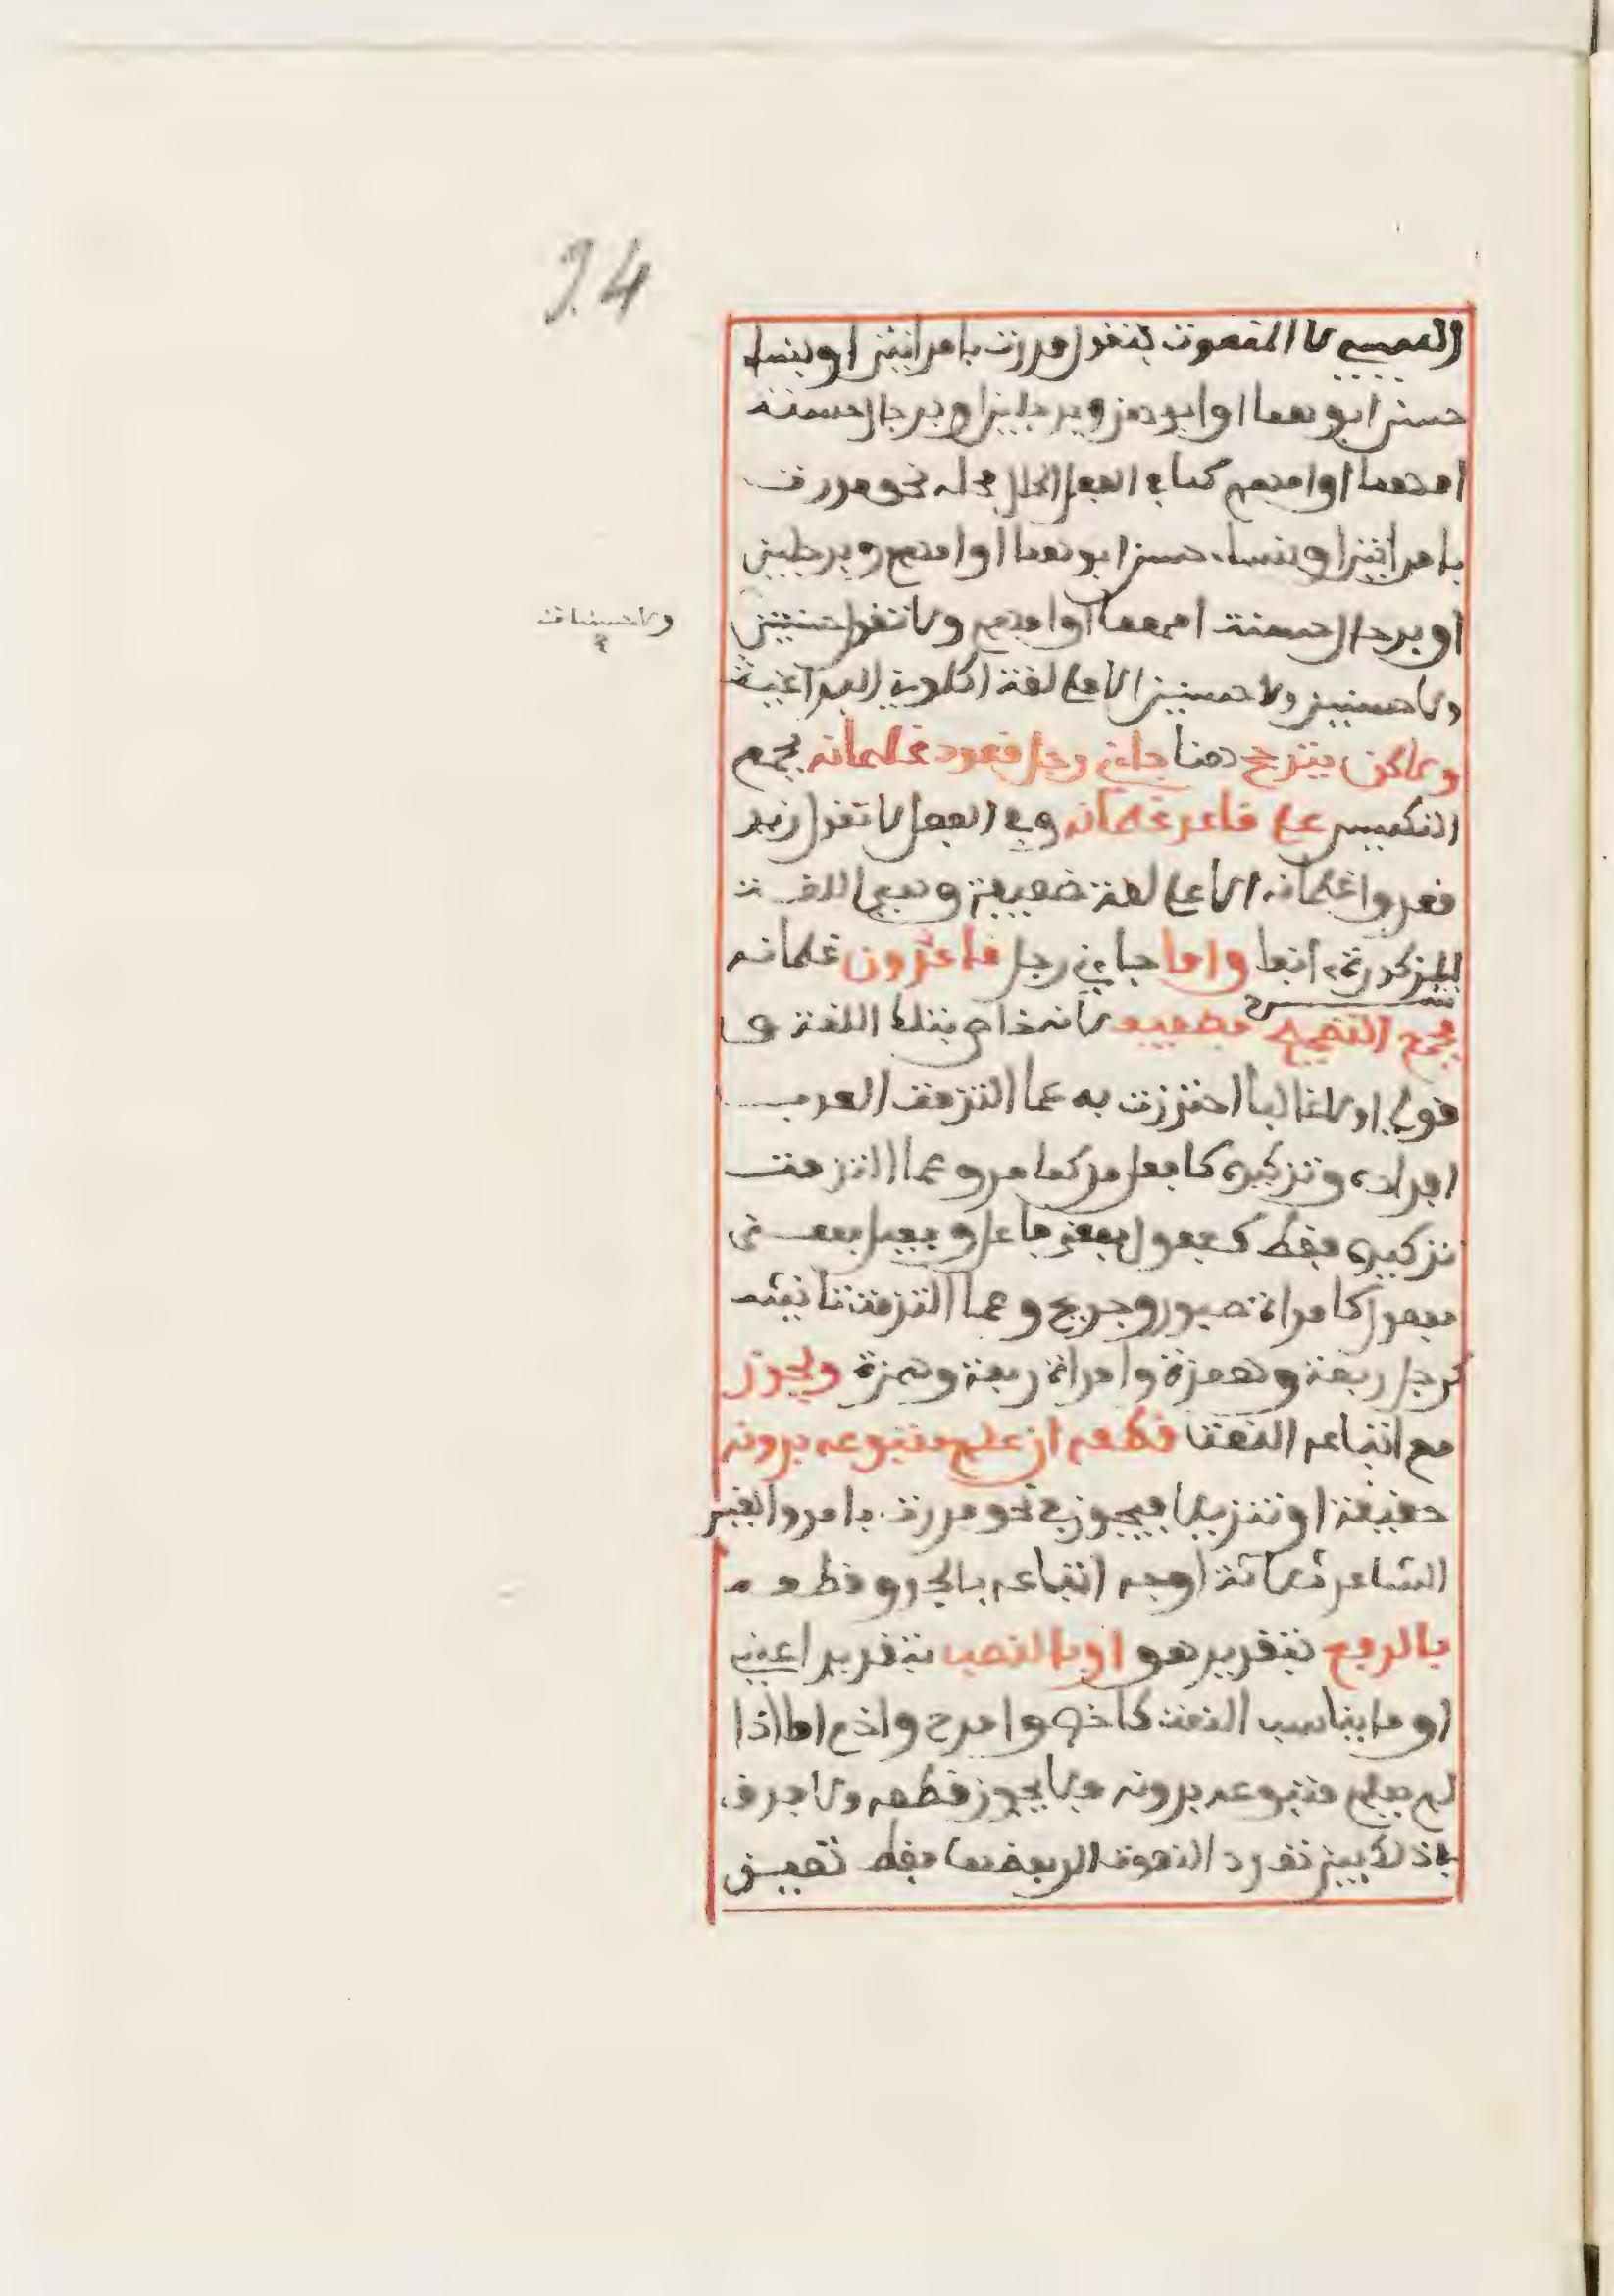 94
السببي لا المنعوت فتقول مررت بامراتين او بنساء
حسن ابوهما او ابوهن وبرجلين او برجال حسنة
امهما او امهم كما في الفعل الحال محله نحو مررت
بامراتين او بنساء حسن ابوهما او امهم وبرجلين
او برجال حسنة امهما او امهم ولا تقول حسنتين
ولا حسنات
ولا حسنين ولا حسنين الا على لغة اكلوني البراغيث
ولاكن يترجح هنا جاءني رجل قعود غلمانه بجمع
التكسير على قاعد غلمانه وفي الفعل لا تقول زيد
قعدوا غلمانه الا على لغة ضعيفة وهي اللغة
المذكورة انفا واما جاءني رجل قاعدون غلمانه
بجمع التصحيح فضعيف لانه خاص بتلك اللغة و
قولي اولا غالبا احترزت به عما التزمت العرب
افراده وتذكيره كافعل من كما مر وعما التزمت
تذكيره فقط كفعول بمعنى فاعل وفعيل بمعنى
مفعول كامراة صبور وجريح وعما التزمت تانيثه
كرجل ربعة وهمزة وامراة ربعة وهمزة ويجوز
مع اتباعه النعت قطعه ان علم متبوعه بدونه
حقيقة او تنزيلا فيجوز في نحو مررت بامرء القيس
الشاعر ثلاثة اوجه اتباعه بالجر وقطعه
بالرفع بتقدير هو او بالنصب بتقدير اعني
او ما يناسب النعت كاخص وامدح واذم اما اذا
لم يعلم متبوعه بدونه فلا يجوز قطعه ولا فرق
في ذلك بين تفرد النعوت فقط تعين